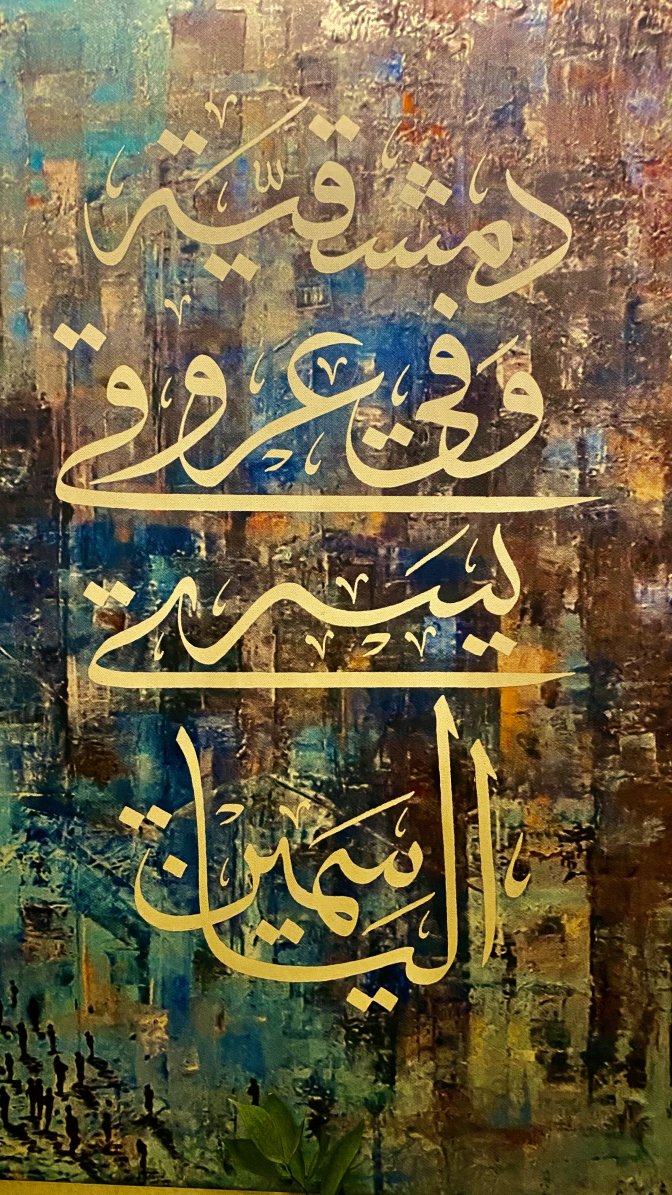 دمشقيّة
وَفي عروقي
يسَري
الياسَمين